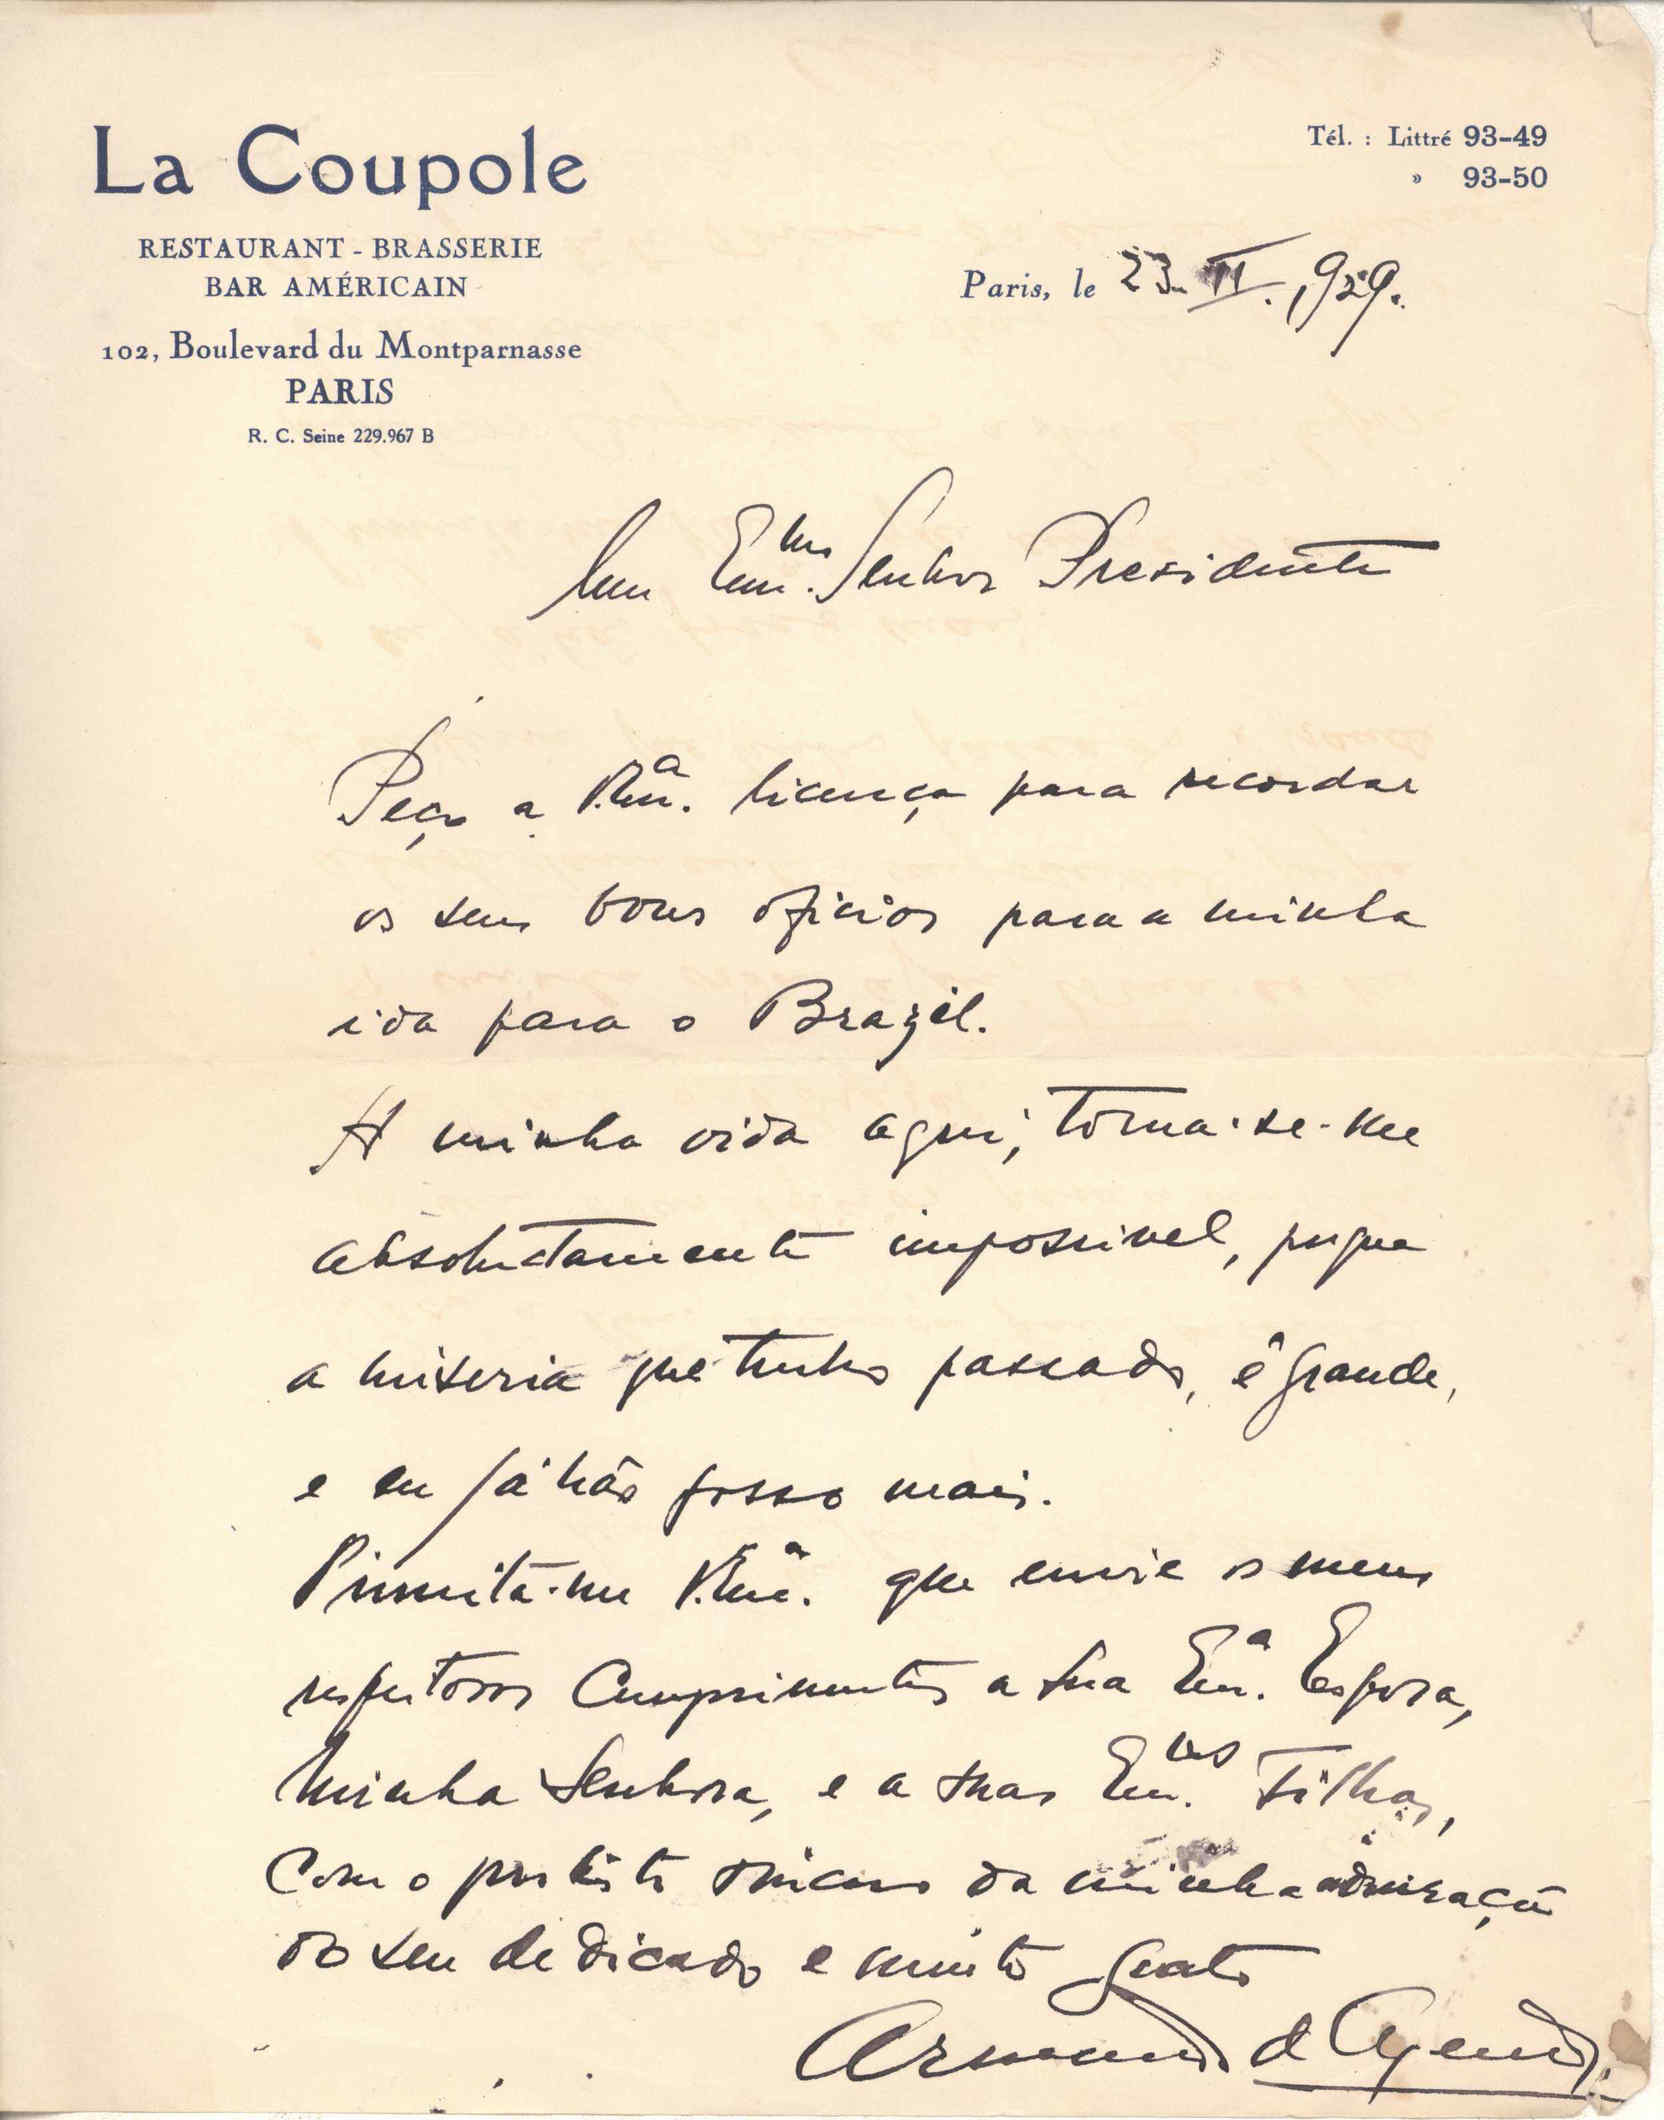 La Coupole
RESTAURANT - BRASSERIE
BAR AMÉRICAIN
102, Boulevard du Montparnasse
PARIS
R. C. Seine 229.967 B
Tél. : Littré 93-49
» 93-50
Paris, le 23. II. 929.
Meu Exmo. Senhor Presidente
Peço a V. Exa. licença para recordar
os seus bons oficios para a minha
ida para o Brazil.
A minha vida aqui, torna-se-me
absolutamente impossivel, porque
a miseria que tenho passado, é grande,
e eu já não posso mais.
Permita-me V. Exa. que envie os meus
respeitosos cumprimentos a sua Exa. Esposa,
Minha Senhora, e a suas Exmas. Filhas,
com o protesto sincero da minha admiração
do seu dedicado e muito grato